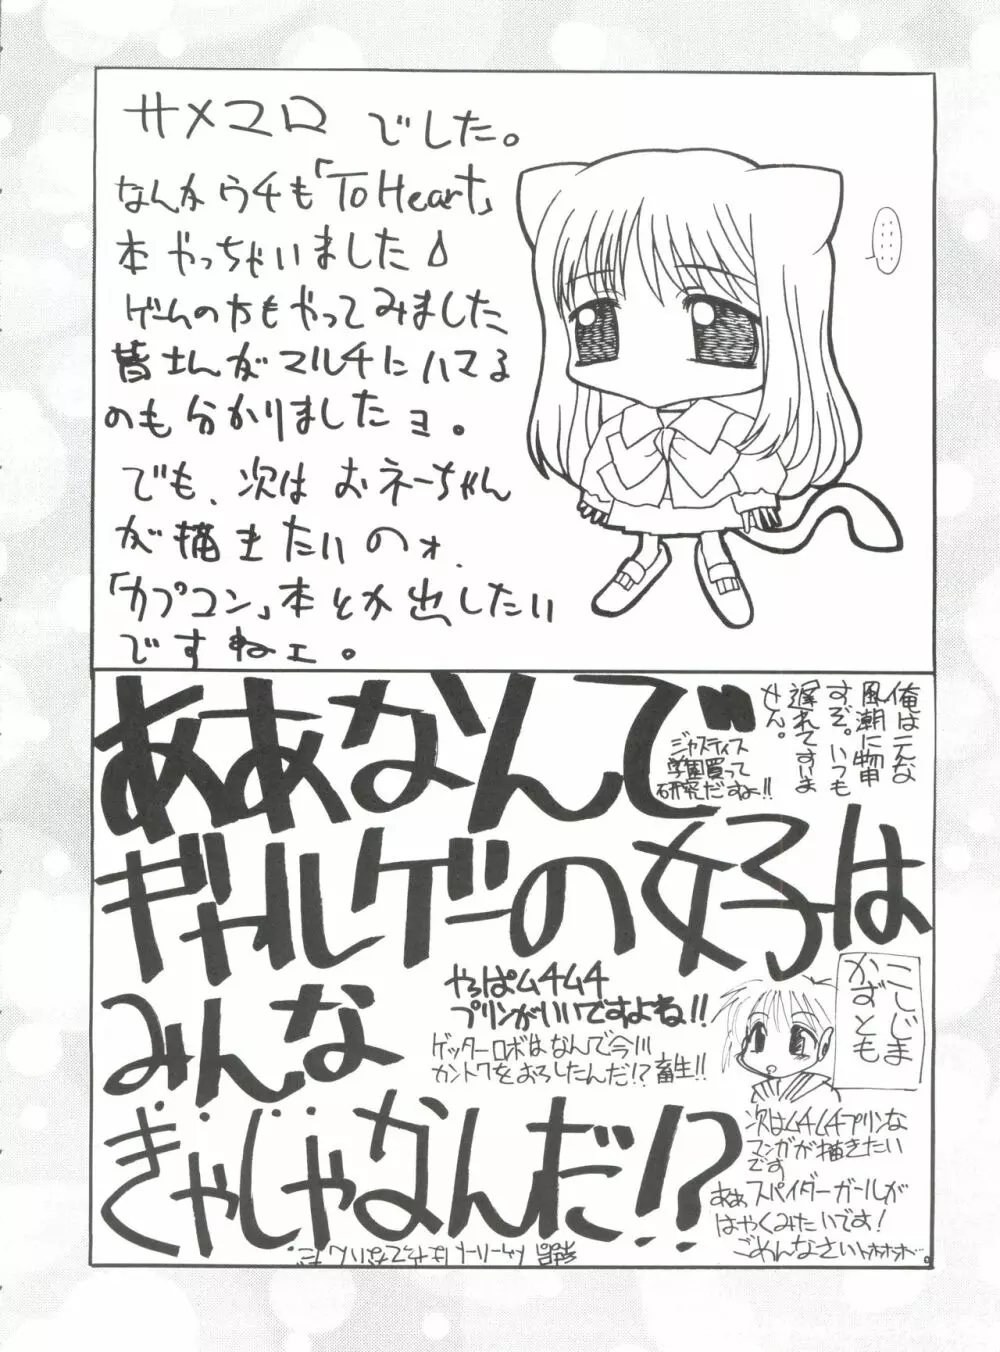 サメマロ でした。
なんかウチも「To Heart」
本やっちゃいました
ゲームの方もやってみました
皆さんがマルチにハマる
のも分かりましたョ。
でも、次はおネーちゃん
が描きたいのォ、
「カプコン」本とか出したい
ですねェ。
俺はこんな
風潮に物申
すぞ。いつも
遅れてすいま
せん。
ああなんで
ジャスティス
学園買って
研究だすね!!
ギャルゲーの女子は
こじま
かずとも
みんな
やっぱムチムチ
プリンがいいですよね!!
ゲッターロボはなんで今川
カントクをおろしたんだ!?畜生!!
きゃしゃなんだ!?
次はムチムチプリンな
マンガが描きたい
です
あぁスパイダーガールが
はやくみたいです!
ごめんなさいトホホホ…。